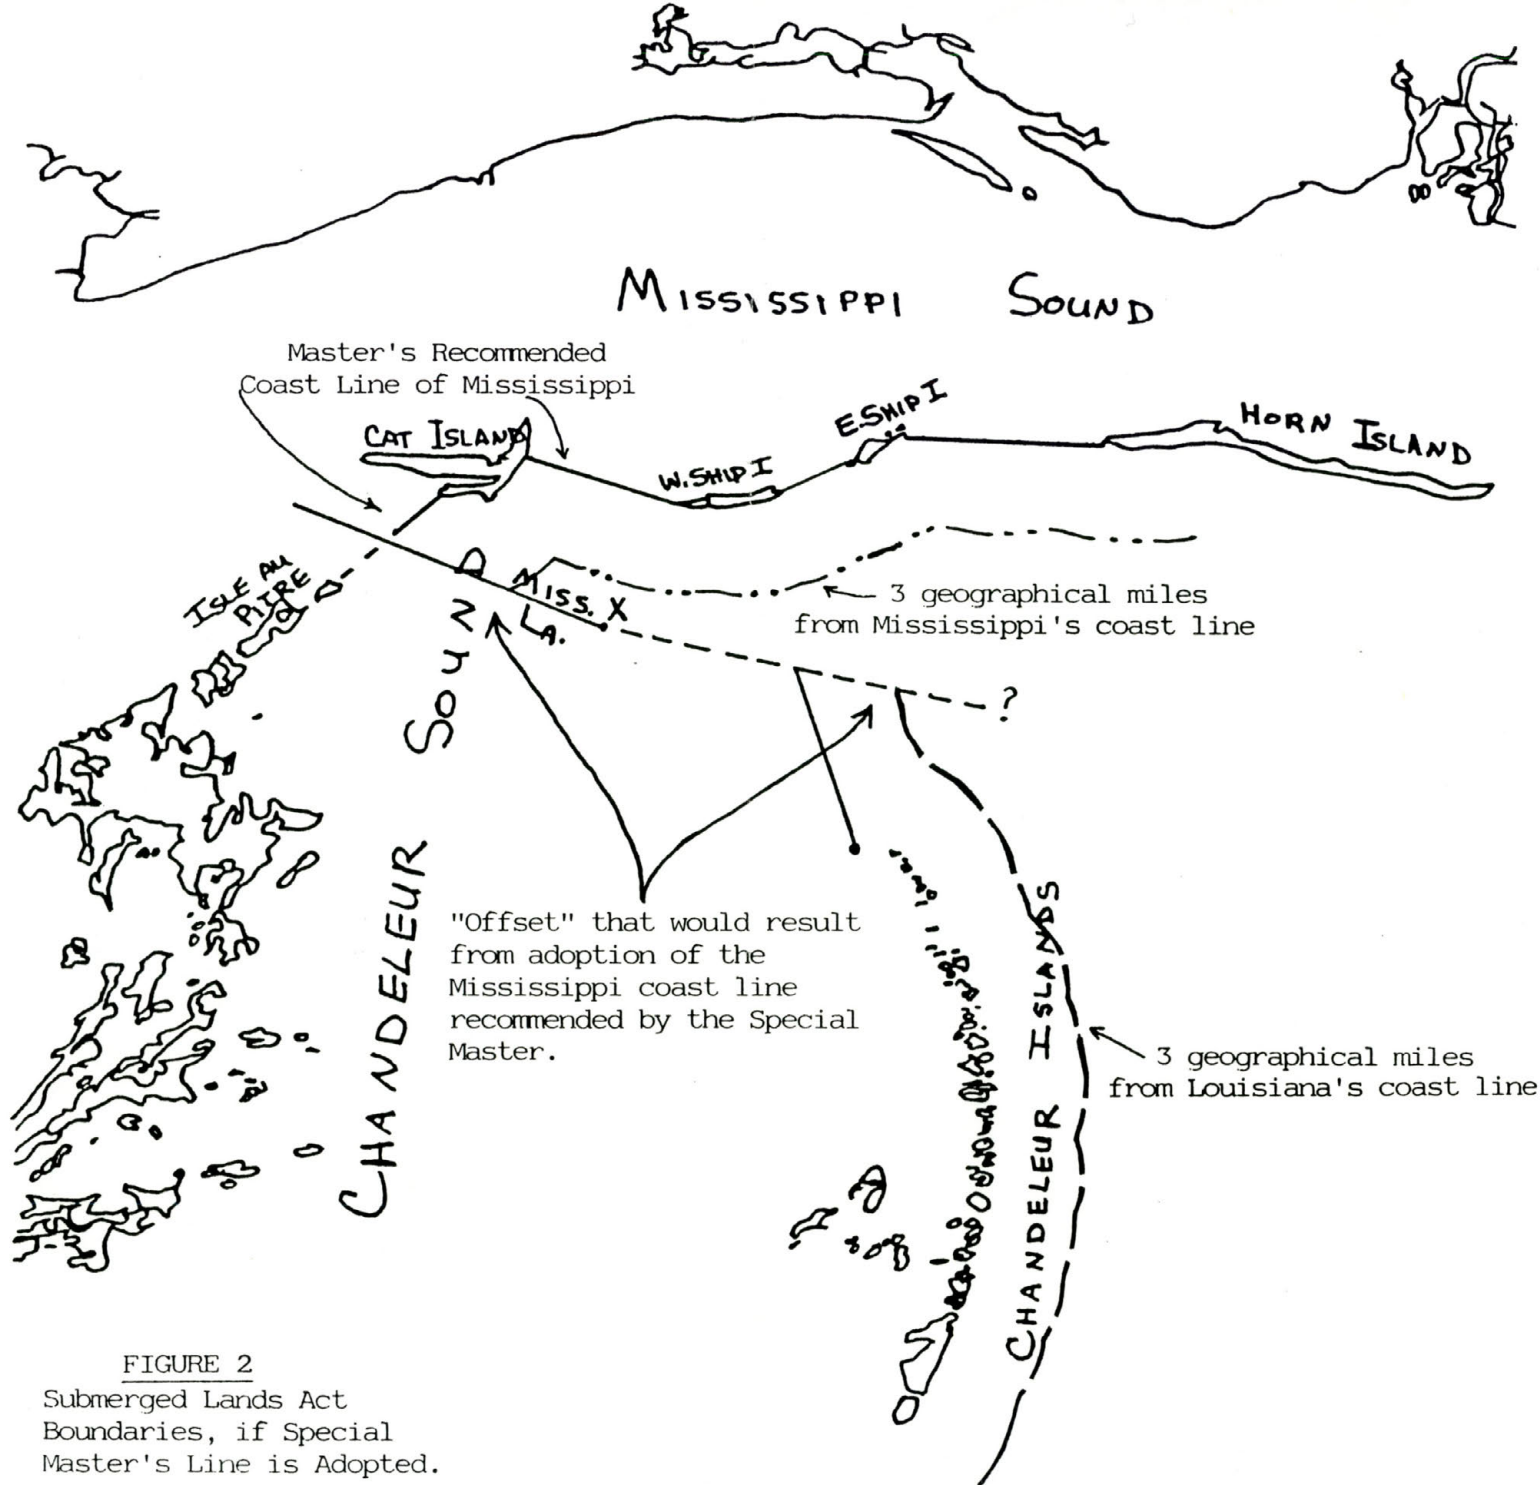 MISSISSIPPI SOUND
Master's Recommended
Coast Line of Mississippi
CAT ISLAND
W. SHIP I
E. SHIP I
HORN ISLAND
ISLE AU
PITRE
MISS. X
LA.
3 geographical miles
from Mississippi's coast line
?
CHANDELEUR SOUND
"Offset" that would result
from adoption of the
Mississippi coast line
recommended by the Special
Master.
CHANDELEUR ISLANDS
3 geographical miles
from Louisiana's coast line
FIGURE 2
Submerged Lands Act
Boundaries, if Special
Master's Line is Adopted.